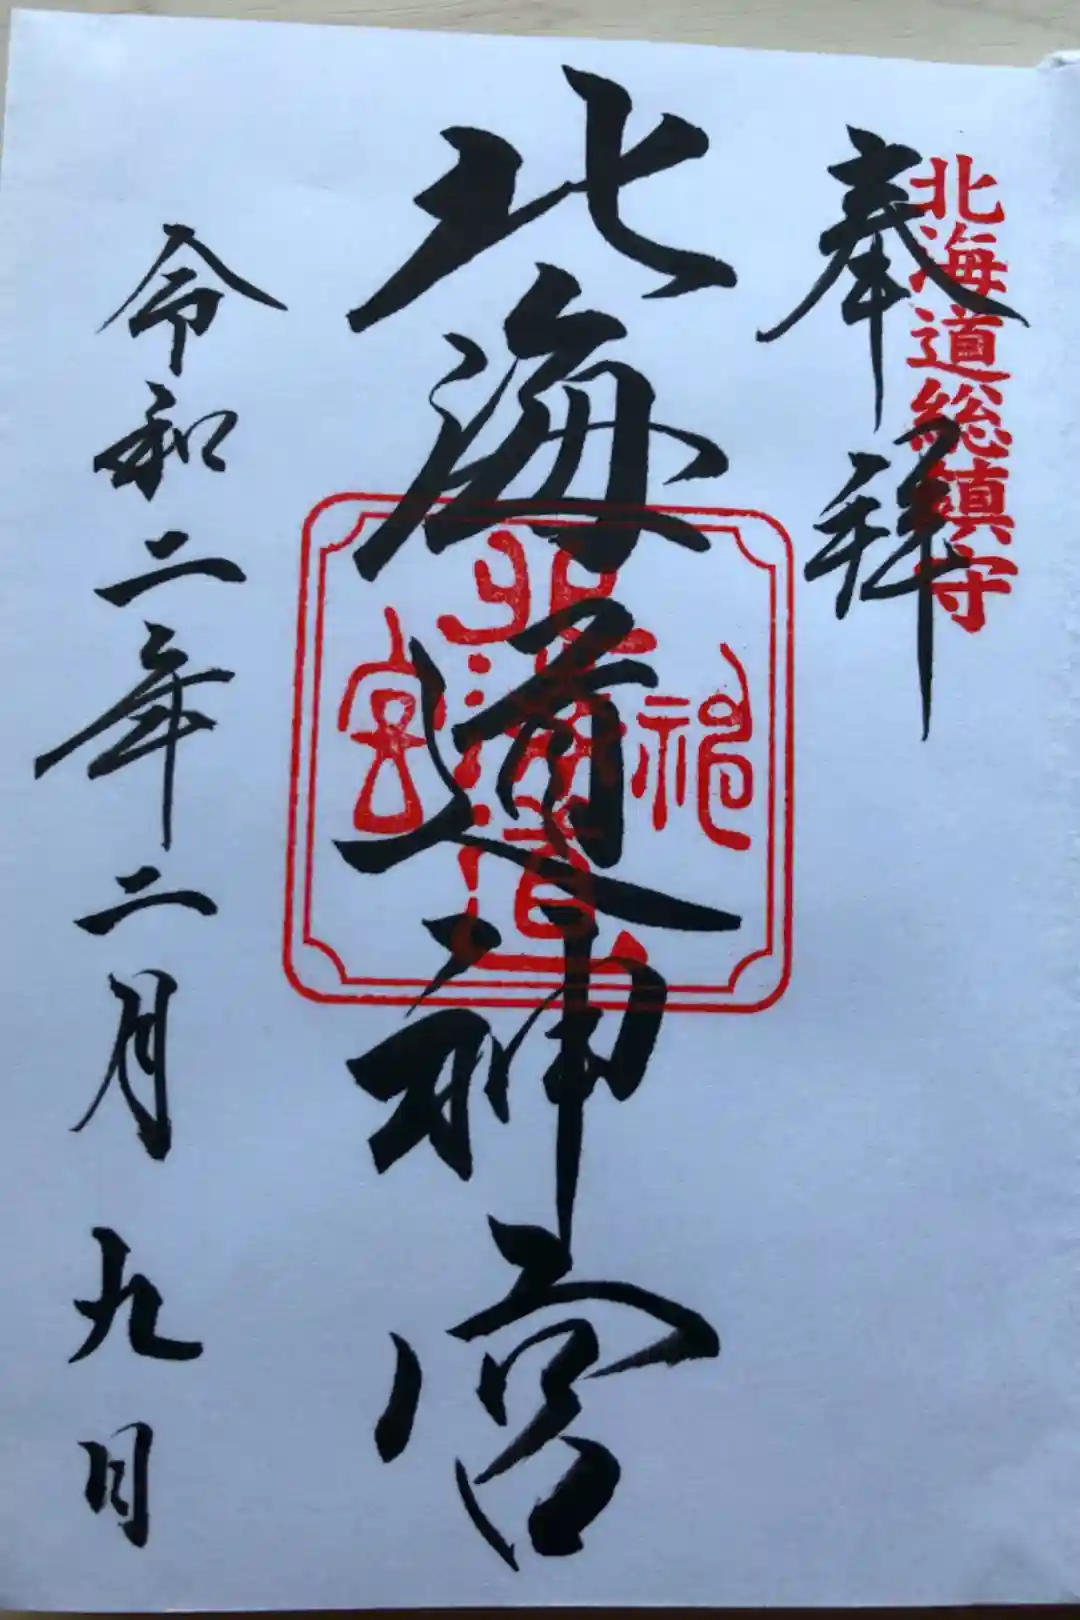 北海道総鎮守
奉拝
北海道神宮
北海道
神
宮
令和二年二月九日